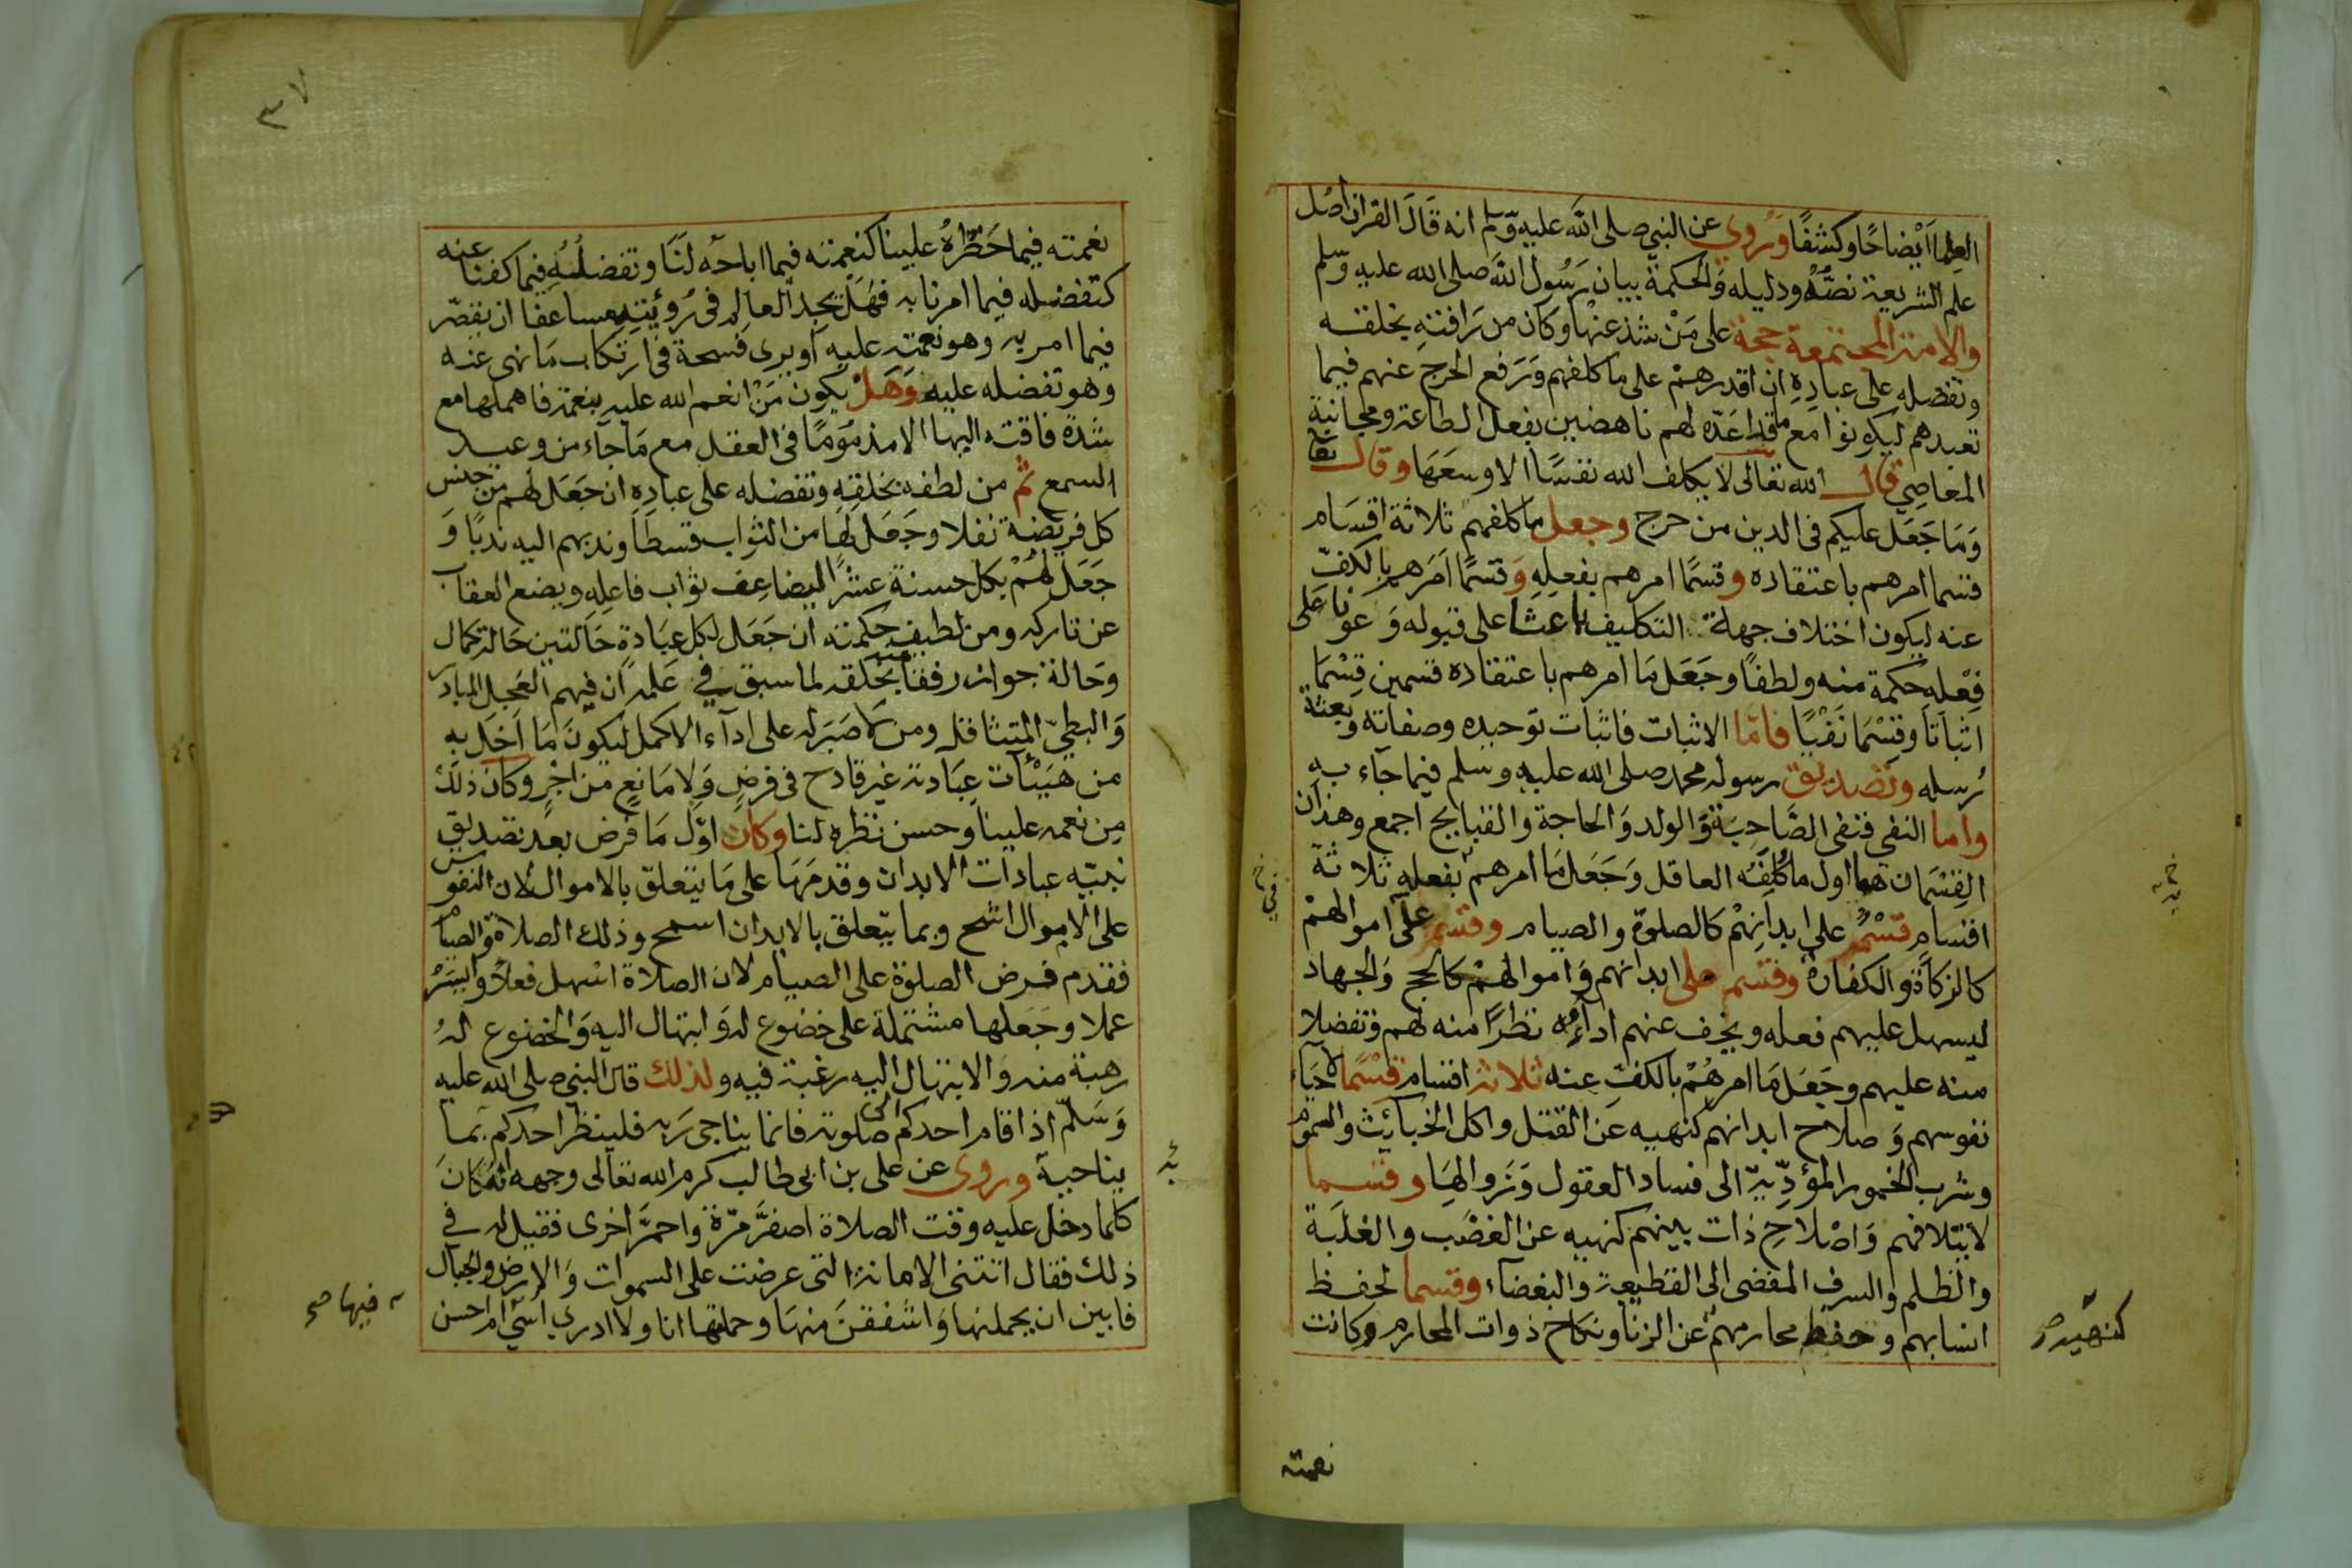 العلما ايضاحا وكشفا وروي عن النبي صلى الله عليه وسلم انه قال القران اصل
علم الشريعة نصه ودليله والحكمة بيان رسول الله صلى الله عليه وسلم
والامة المجتمعة حجة على من شذ عنها وكان من رافته بخلقه
وتفضله على عباده ان اقدرهم على ما كلفهم ورفع الحرج عنهم فيما
تعبدهم ليكونوا مع ما قد اعده لهم ناهضين بفعل الطاعة ومجانبة
المعاصي قال الله تعالى لا يكلف الله نفسا الا وسعها وقال تعا
وما جعل عليكم في الدين من حرج وجعل ما كلفهم ثلاثة اقسام
قسما امرهم باعتقاده وقسما امرهم بفعله وقسما امرهم بالكف
عنه ليكون اختلاف جهلة التكليف باعثا على قبوله وعونا على
فعله حكمة منه ولطفا وجعل ما امرهم باعتقاده قسمين قسما
اثباتا وقسما نفيا فاما الاثبات فاثبات توحيده وصفاته وبعثة
رسله وتصديق رسوله محمد صلى الله عليه وسلم فيما جآء به
واما النفى فنفى الصاحبة والولد والحاجة والقبايح اجمع وهذان
القسمان هما اول ما كلفه العاقل وجعل ما امرهم بفعله ثلاثة
اقسام قسم على ابدانهم كالصلوة والصيام وقسم على اموالهم
كالزكاة والكفارة وقسم على ابدانهم واموالهم كالحج والجهاد
ليسهل عليهم فعله ويخف عنهم اداؤه نظرا منه لهم وتفضلا
منه عليهم وجعل ما امرهم بالكف عنه ثلاثة اقسام قسما لاحياء
نفوسهم وصلاح ابدانهم كنهيه عن القتل واكل الخبائث والسموم
وشرب الخمور المؤدية الى فساد العقول وزوالها وقسما
لائتلافهم واصلاح ذات بينهم كنهيه عن الغضب والغلبة
والظلم والسرف المفضى الى القطيعة والبغضاء وقسما لحفظ
انسابهم وحفظ محارمهم عن الزنا ونكاح ذوات المحارم وكانت
كنهيه صح
نعمته
٣٧
نعمته فيما حظره علينا كنعمته فيما اباحه لنا وتفضله فيما كفنا عنه
كتفضله فيما امرنا به فهل يجد العالم في رؤيته مساعفا ان يقصر
فيما امر به وهو نعمة عليه او يرى فسحة في ارتكاب ما نهى عنه
وهو تفضله عليه وهل يكون من انعم الله عليه بنعمة فاهملها مع
شدة فاقته اليها الا مذموما في العقل مع ما جآء من وعيد
السمع ثم من لطفه بخلقه وتفضله على عباده ان جعل لهم من جنس
كل فريضة نفلا وجعل لها من الثواب قسطا وندبهم اليه ندبا و
جعل لهم بكل حسنة عشرا ليضاعف ثواب فاعله ويضع العقاب
عن تاركه ومن لطيف حكمته ان جعل لكل عبادة حالتين حالة كمال
وحالة جواز رفقا منه بخلقه لما سبق في علمه ان فيهم العجل المبادر
والبطئ المتثاقل ومن لا صبر له على ادآء الاكمل ليكون ما اخل به
من هيئآت عبادته غير قادح في فرض ولا مانع من اجر وكان ذلك
من نعمه علينا وحسن نظره لنا وكان اول ما فرض بعد تصديق
نبيه عبادات الابدان وقدمها على ما يتعلق بالاموال لان النفوس
على الاموال اشح وبما يتعلق بالابدان اسمح وذلك الصلاة والصيام
فقدم فرض الصلوة على الصيام لان الصلاة اسهل فعلا وايسر
عملا وجعلها مشتملة على خضوع له وابتهال اليه والخضوع له
رهبة منه والابتهال اليه رغبة فيه ولذلك قال النبي صلى الله عليه
وسلم اذا قام احدكم الى صلوته فانما يناجى ربه فلينظر احدكم بما
يناجيه وروى عن على بن ابى طالب كرم الله تعالى وجهه انه كان
كلما دخل عليه وقت الصلاة اصفر مرة واحمر اخرى فقيل له في
ذلك فقال اتتنى الامانة التى عرضت على السموات والارض والجبال
فابين ان يحملنها واشفقن منها وحملتها انا ولا ادرى اسئ ام احسن
فيها صح